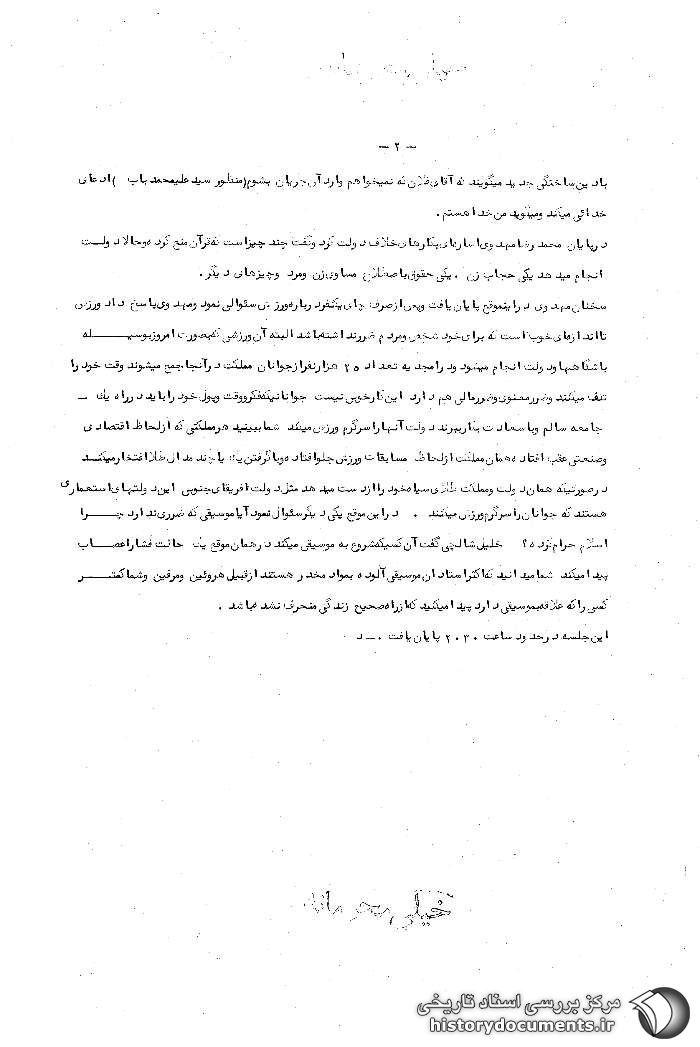 خیلی محرمانه
- ۲ -
باد ین ساختگی جد ید میگویند که آقای فلان که نمیخواهم وارد آن جریان بشوم(منظور سید علیمحمد باب ) اد عای
خدائی میکند ومیگوید من خدا هستم .
د رپایان محمد رضا مهد وی اشاره‌ای بکارهای خلاف د ولت کرد وگفت چند چیزاست که قرآن منع کرد ه وحالا د ولت
انجام مید هد یکی حجاب زن . یکی حقوق باصطلاح مساوی زن ومرد وچیزهای د یگر .
سخنان مهد وی د راینموقع پایان یافت وبعد ازصرف چای یکنفرد رباره ورزش سئوالی نمود ومهد وی پاسخ د اد ورزش
تااند ازه‌ای خوب است که برای خود شخص ومردم ضررند اشته باشد البته آن ورزشی که بصورت امروز بوسیــــله
باشگاهها ود ولت انجام میشود ود رامجد یه تعد اد ۲۵ هزارنفراز جوانان مملکت د رآنجا جمع میشوند وقت خود را
تلف میکنند وضرر معنوی وضررمالی هم د ارد این کارخوبی نیست جوانانیکه فکرووقت وپول خود را باید د رراه یك -
جامعه سالم وباسعادت بکارببرند د ولت آنها را سرگرم ورزش میکند شما ببینید هر مملکتی که ازلحاظ اقتصاد ی
وصنعتی عقب افتاد ه همان مملکت ازلحاظ مسابقات ورزش جلوافتاد ه وبا گرفتن یك یا چند مد ال طلا افتخار میکنــد
د رصورتیکه همان د ولت ومملکت طلای سیاه خود را ازد ست مید هد مثل د ولت افریقای جنوبی این د ولتهای استعماری
هستند که جوانان را سرگرم ورزش میکنند . د راین موقع یکی د یگر سئوال نمود آیا موسیقی که ضرری ند ارد چـــرا
اسلام حرام کرد ه ؟ خلیل شالچی گفت آن کسیکه شروع به موسیقی میکند د رهمان موقع یك حالت فشار اعصـــاب
پید امیکند شما مید انید که اکثر استاد ان موسیقی آلود ه بمواد مخد ر هستند ازقبیل هروئین ومرفین وشما کمتــــر
کسی را که علاقه بموسیقی د ارد پید ا میکنید که ازراه صحیح زند گی منحرف نشد ه باشد .
این جلسه د رحد ود ساعت ۲۰۳۰ پایان یافت .
خیلی محرمانه
مرکز بررسی اسناد تاریخی
historydocuments.ir